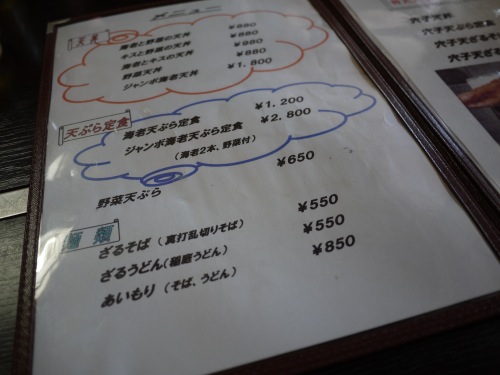 メニュー
天丼
海老と野菜の天丼 ¥880
キスと野菜の天丼 ¥880
海老とキスの天丼 ¥980
野菜天丼 ¥880
ジャンボ海老天丼 ¥1,800
天ぷら定食
海老天ぷら定食 ¥1,200
ジャンボ海老天ぷら定食 ¥2,800
(海老2本、野菜付)
野菜天ぷら ¥650
麺類
ざるそば(真打乱切りそば) ¥550
ざるうどん(稲庭うどん) ¥550
あいもり(そば、うどん) ¥850
穴子天丼
穴子天ぷら定
穴子天ざるそ
穴子天ざ